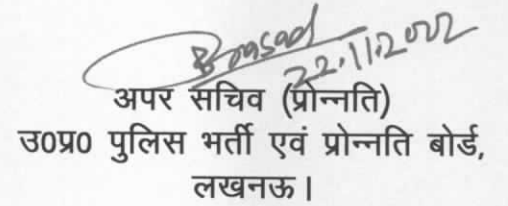 Prasad
22.11.2022
अपर सचिव (प्रोन्नति)
उ०प्र० पुलिस भर्ती एवं प्रोन्नति बोर्ड,
लखनऊ।